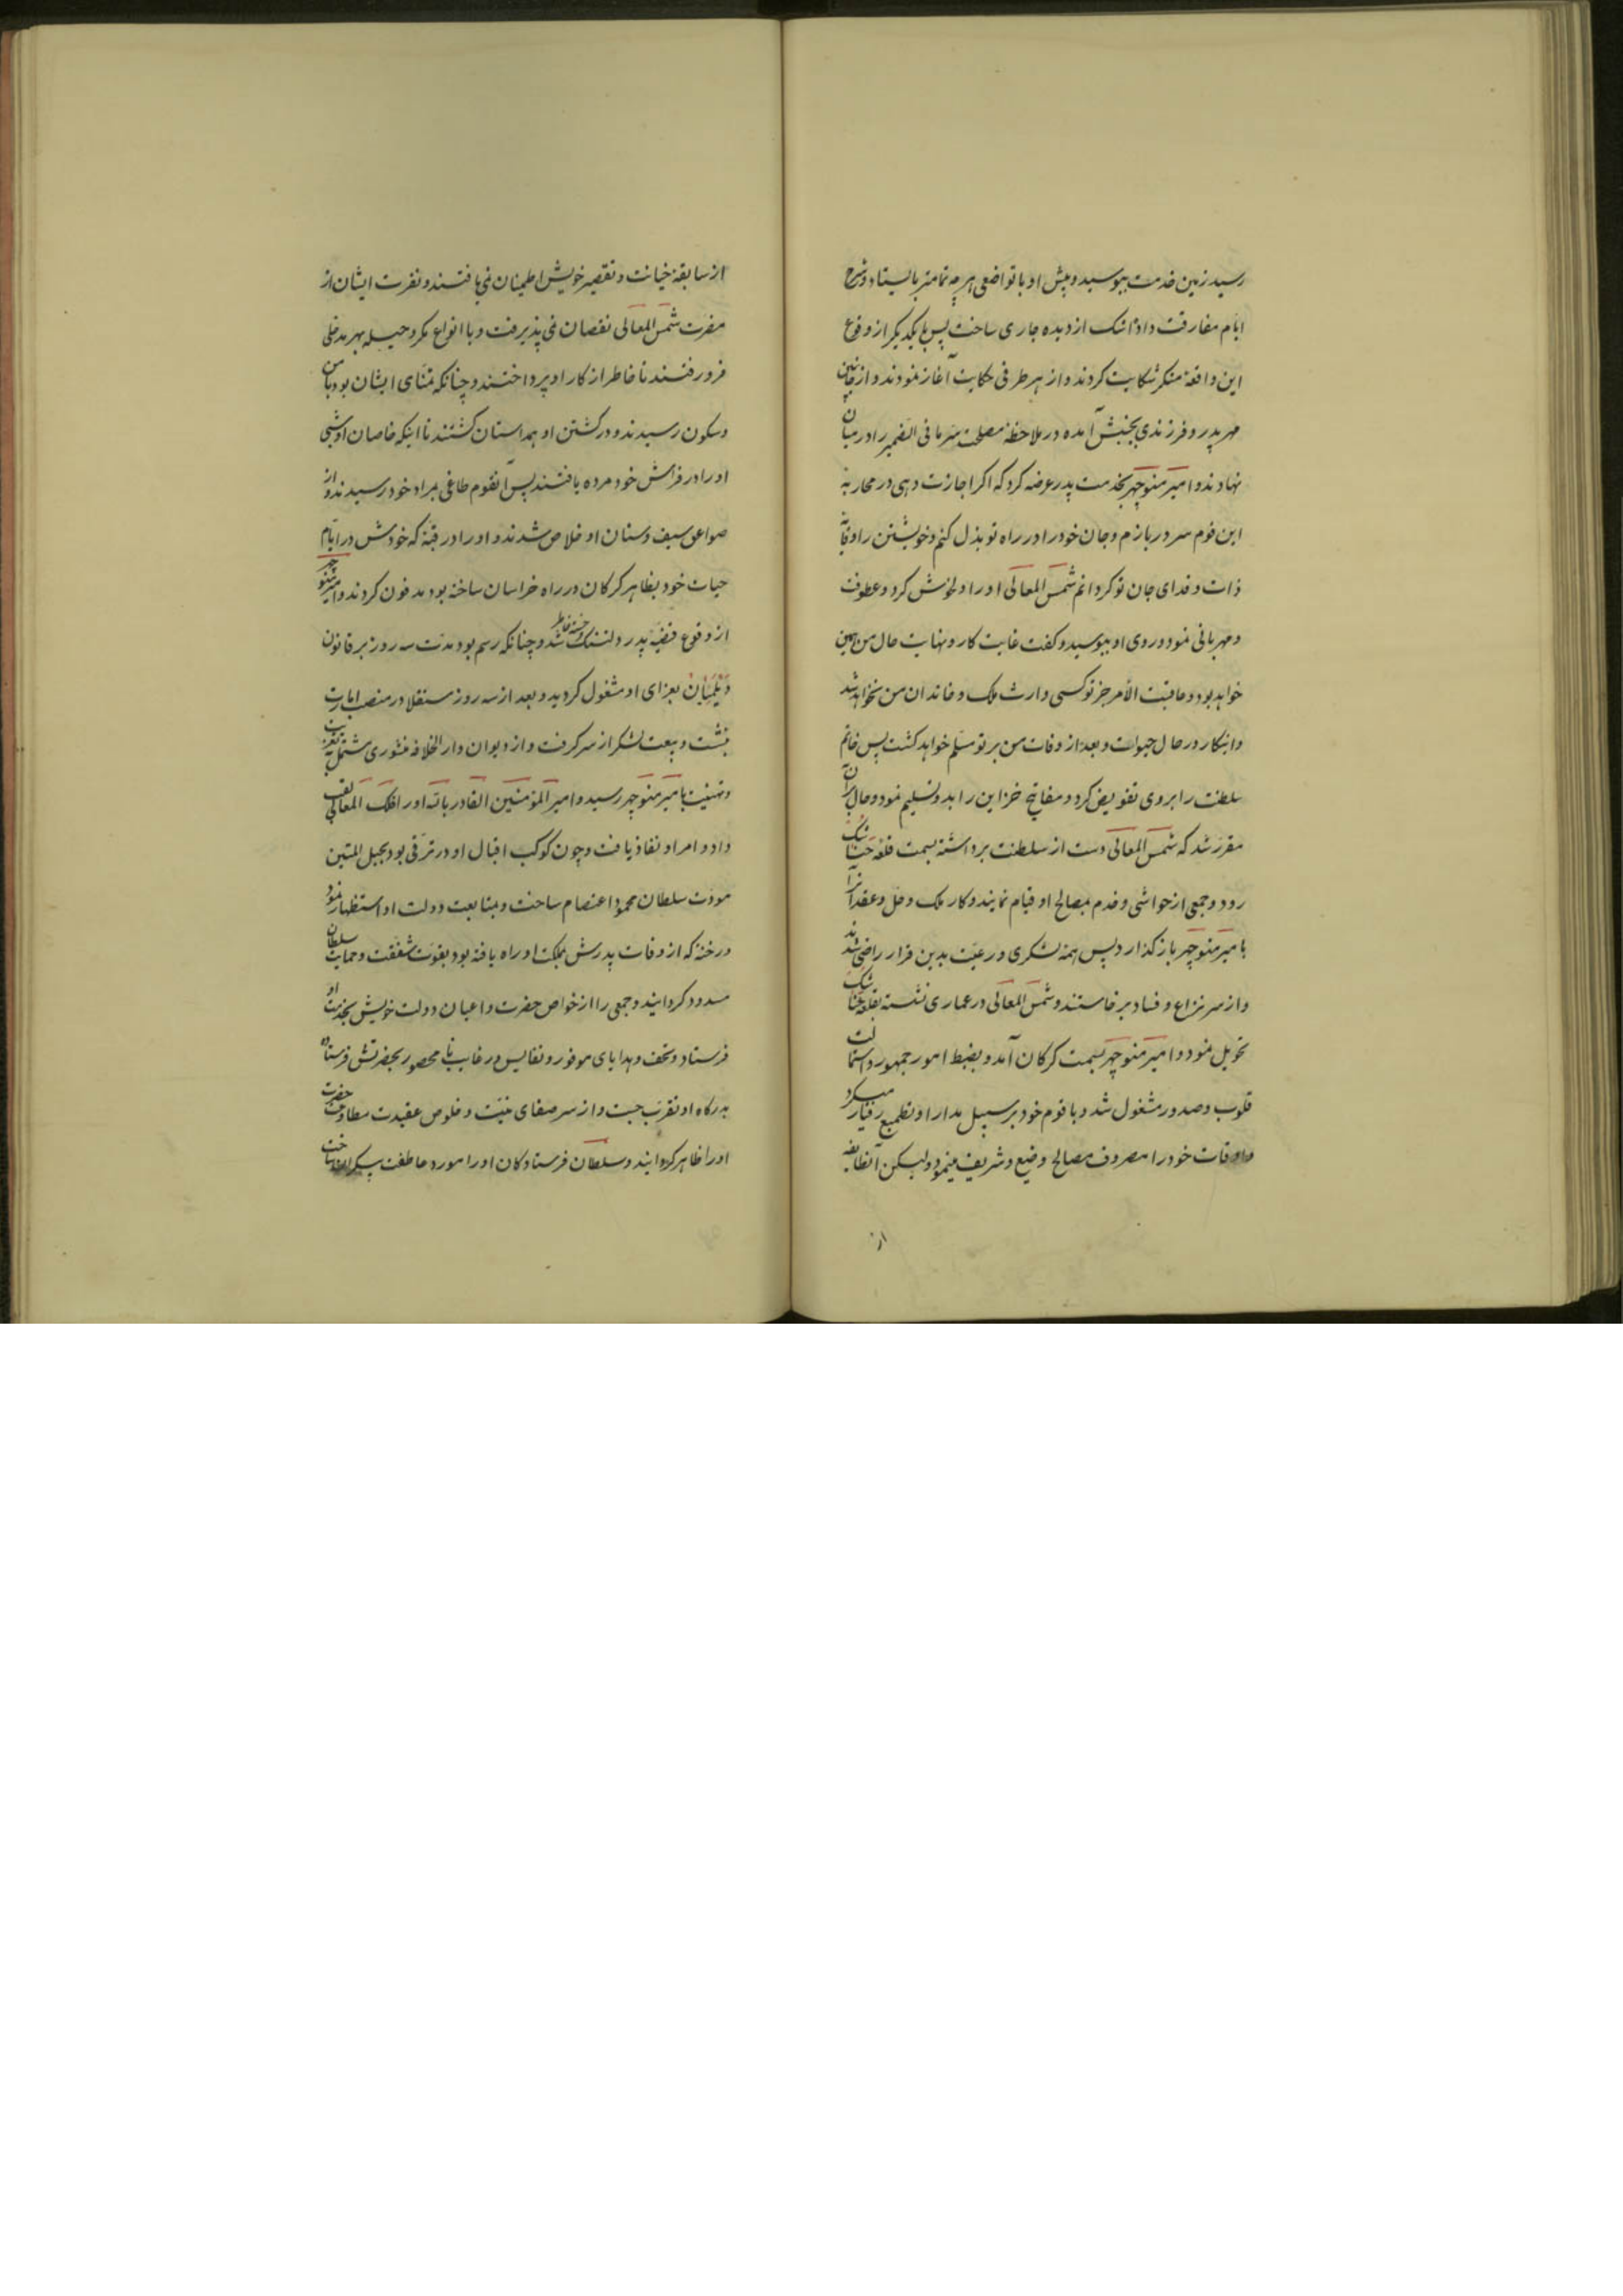 رسید زمین خدمت ببوسید و پیش او با تواضعی هر چه تمامتر بایستاد و شرح
ایام مفارقت داد و اشک از دیده جاری ساخت پس با یکدیگر از وقوع
این واقعهٔ منکر شکایت کردند و از هر طرفی حکایت آغاز نمودند و از جانبین
مهر پدر و فرزندی بجنبش آمده در ملاحظهٔ مصلحت سر ما فی الضمیر را در میان
نهادند و امیر منوچهر بخدمت پدر عرضه کرد که اگر اجازت دهی در محاربهٔ
این قوم سر در بازم و جان خود را در راه تو بذل کنم و خویشتن را وقایهٔ
ذات و فدای جان تو گردانم شمس المعالی او را دلخوش کرد و عطوفت
و مهربانی نمود و روی او ببوسید و گفت غایت کار و نهایت حال من همین
خواهد بود و عاقبت الأمر جز تو کسی وارث ملک و خاندان من نخواهد شد
و اینکار در حال حیوات و بعد از وفات من بر تو مسلم خواهد گشت پس خاتم
سلطنت را بروی تفویض کرد و مفاتیح خزاین را بدو تسلیم نمود و حال بر آن
مقرر شد که شمس المعالی دست از سلطنت برداشته بسمت قلعه جناشک
رود و جمعی از حواشی و خدم بمصالح او قیام نمایند و کار ملک و حل و عقد آنرا
بامیر منوچهر باز گذارد پس همه لشکری و رعیت بدین قرار راضی شدند
و از سر نزاع و فساد برخاستند و شمس المعالی در عماری نشسته بقلعه جناشک
تحویل نمود و امیر منوچهر بسمت کرکان آمد و بضبط امور جمهور و استمالت
قلوب و صدور مشغول شد و با قوم خود بر سبیل مدارا و تطمیع رفتار میکرد
و اوقات خود را مصروف مصالح وضیع و شریف مینمود ولیکن آنطایفه
از
از سابقهٔ خیانت و تقصیر خویش اطمینان نمی یافتند و نفرت ایشان از
مضرت شمس المعالی نقصان نمی پذیرفت و با انواع مکر و حیله بهر مدخلی
فرو رفتند تا خاطر از کار او پرداختند و چنانکه تمنای ایشان بود بامن
و سکون رسیدند و در کشتن او همداستان گشتند تا اینکه خاصان او شبی
او را در فراش خود مرده یافتند پس آنقوم طاغی بمراد خود رسیدند و از
صواعق سیف و سنان او خلاص شدند و او را در قبه که خودش در ایام
حیات خود بظاهر کرکان در راه خراسان ساخته بود مدفون کردند و امیر منوچهر
از وقوع قضیه پدر دلتنگ و خسته خاطر شد و چنانکه رسم بود مدت سه روز بر قانون
دیلمیان بعزای او مشغول گردید و بعد از سه روز مستقلا در منصب امارت
بنشست و بیعت لشکر از سر گرفت و از دیوان دار الخلافه منثوری مشتمل بر تعزیت
و تهنیت بامیر منوچهر رسید و امیر المؤمنین القادر بالله او را فلک المعالی لقب
داد و امر او نفاذ یافت و چون کوکب اقبال او در ترقی بود بحبل المتین
مودت سلطان محمود اعتصام ساخت و بمتابعت دولت او استظهار نمود
و رخنه که از وفات پدرش بملکت او راه یافته بود بقوت شفقت و حمایت سلطان
مسدود گردانید و جمعی را از خواص حضرت و اعیان دولت خویش بخدمت او
فرستاد و تحف و هدایای موفور و نفایس و رغایب نا محصور بحضرتش فرستاده
بدرگاه او تقرب جست و از سر صفای نیت و خلوص عقیدت مطاوعت حضرت
او را ظاهر گردانید و سلطان فرستادگان او را مورد عاطفت بیکران ساخت